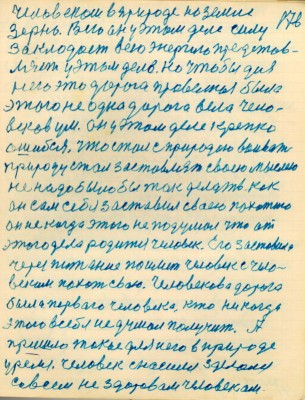 человеком в природе на земле 176
Зерно. Его он у этом деле силу
Закладает всего энергию представ-
ляет у этом деле. Но чтобы для
него это дорога проведена была
этого не одна дорога вела чело-
века ум. Он у этом деле крепко
ошибся, что стал с природою воевать
природу стал заставлять своею мыслию
не надо было бы так делать. Как
он сам себя заставил своею похотью
он не когда этого не подумал что от
этого дела родится человек. Его заставила
через питание пошлет человек с чело-
веком похот свою. Человекова дорога
была первого человека, кто никогда
этого в себе не думал получит. А
пришло такое для него в природе
время, человек снаснил зделался
совсем не здоровым человеком.